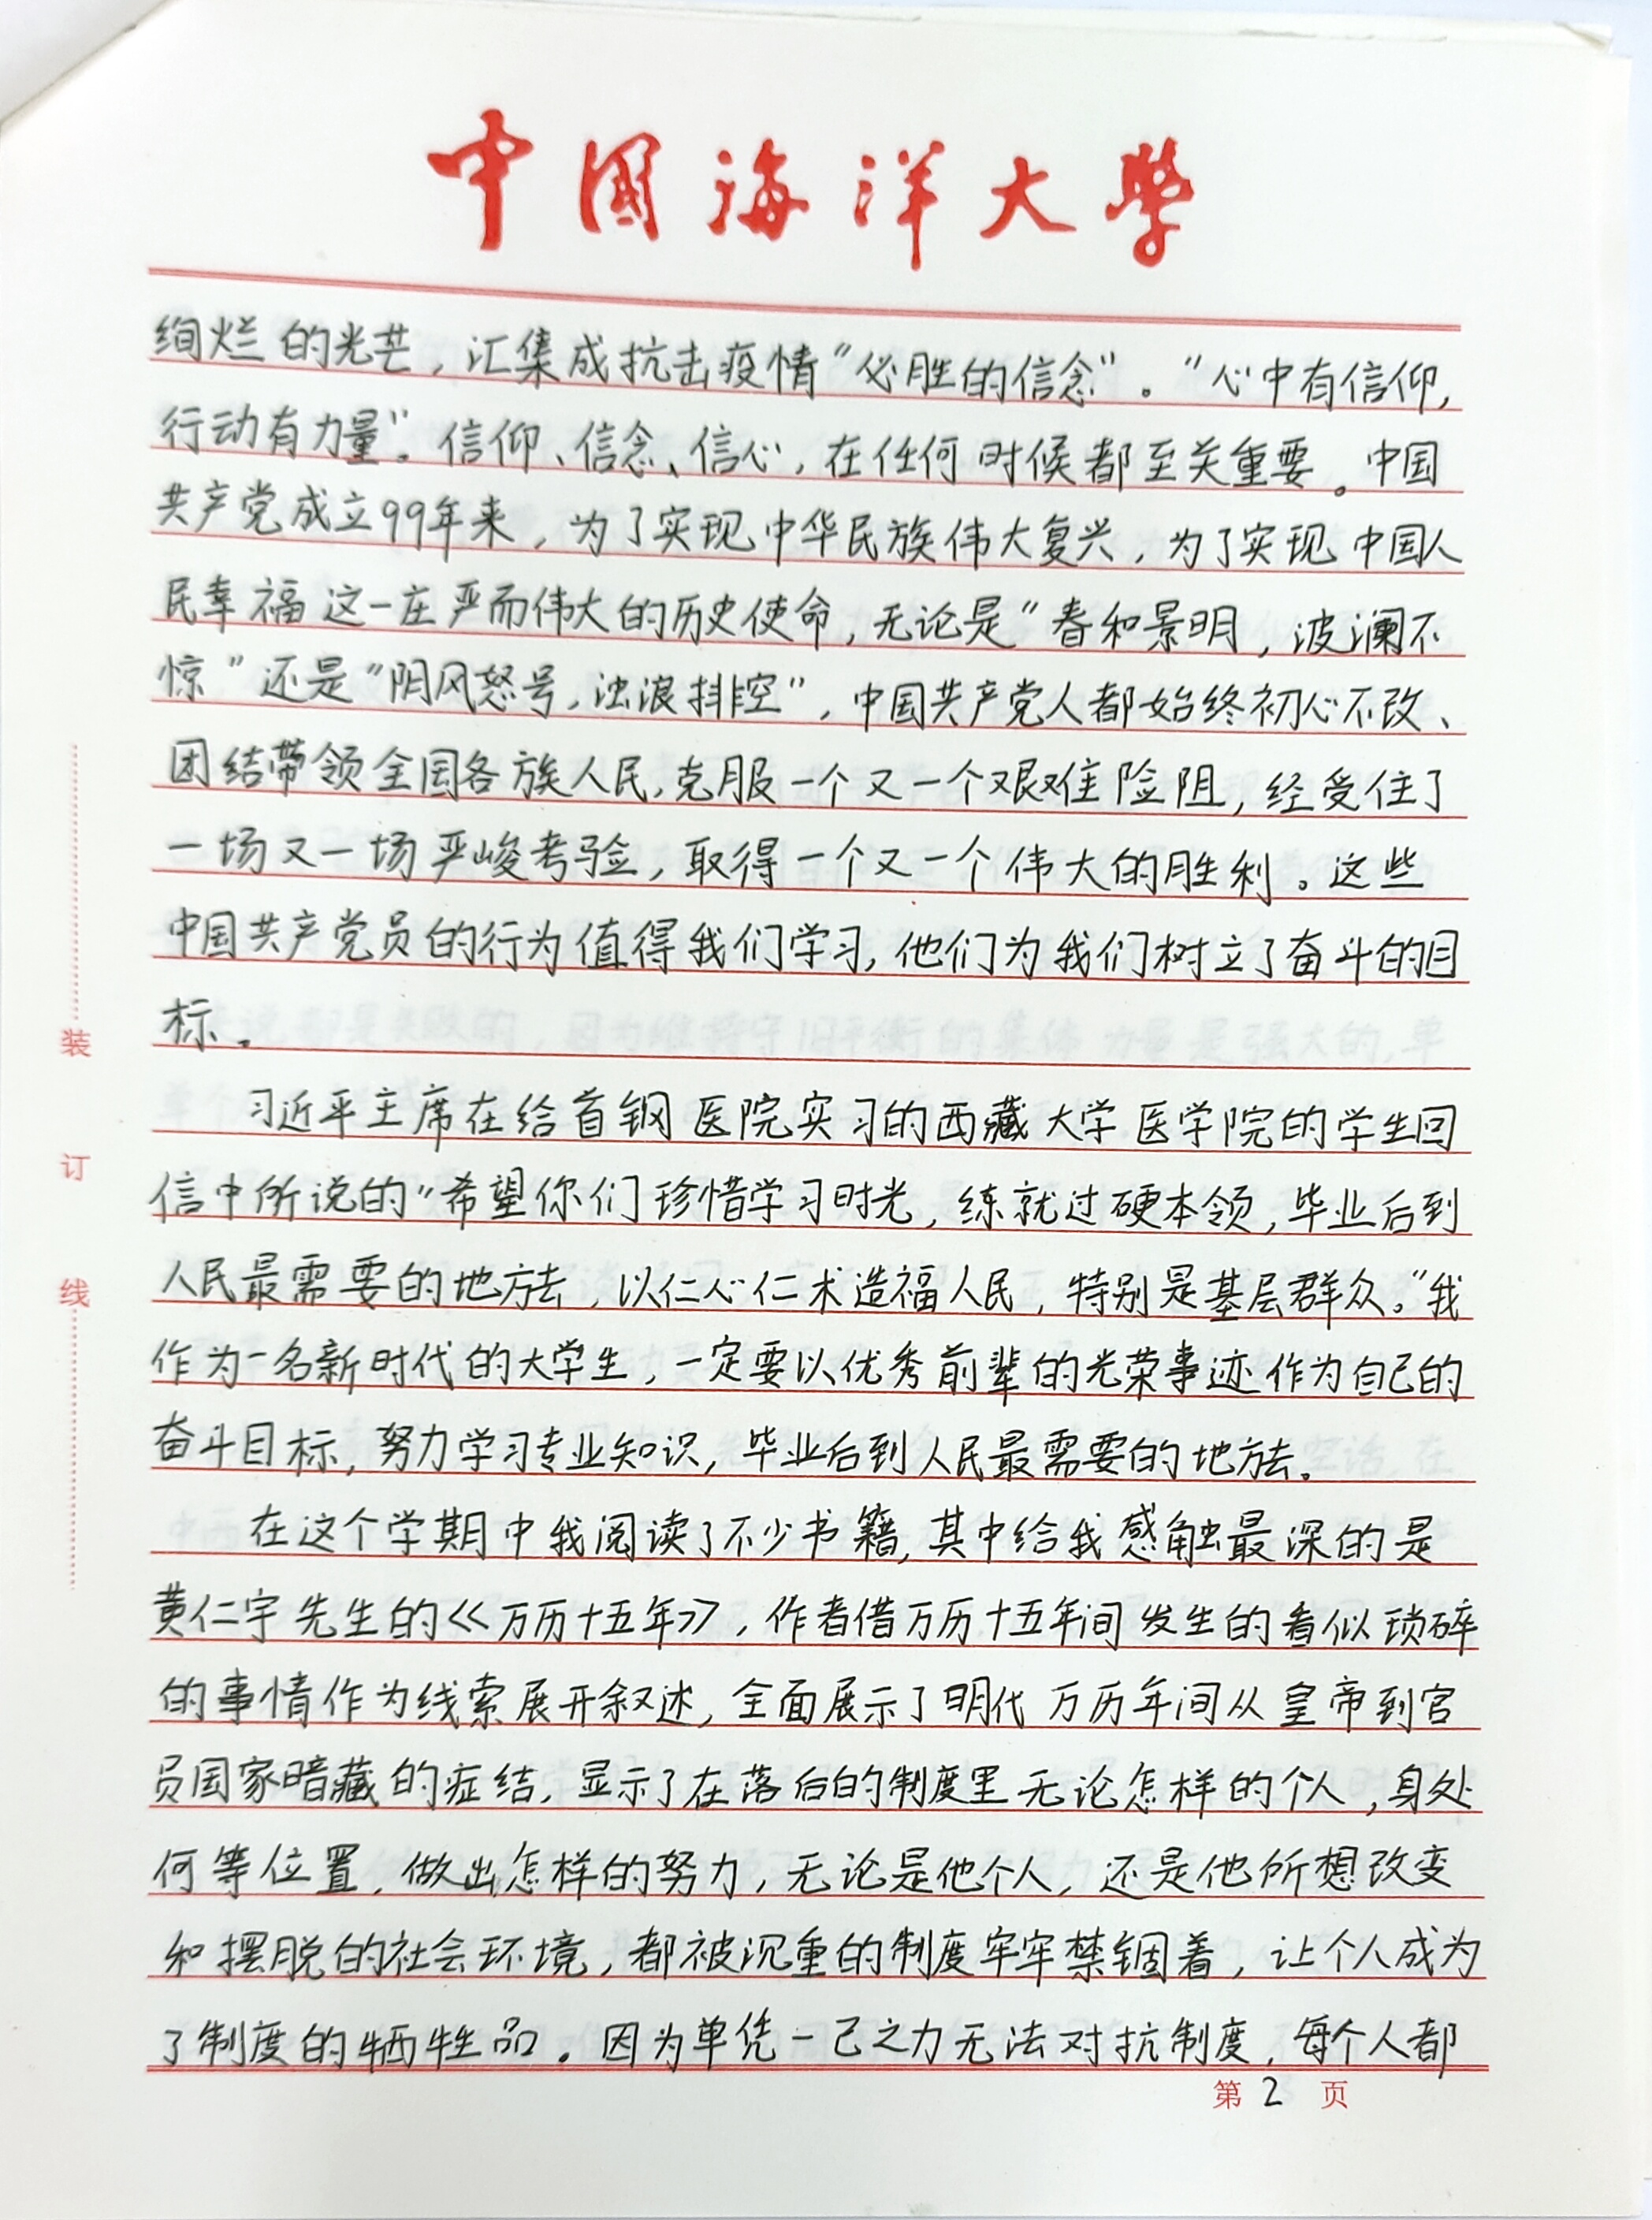 中国海洋大學
绚烂的光芒，汇集成抗击疫情“必胜的信念”。“心中有信仰，
行动有力量”。信仰、信念、信心，在任何时候都至关重要。中国
共产党成立99年来，为了实现中华民族伟大复兴，为了实现中国人
民幸福这一庄严而伟大的历史使命，无论是“春和景明，波澜不
惊”还是“阴风怒号，浊浪排空”，中国共产党人都始终初心不改、
团结带领全国各族人民，克服一个又一个艰难险阻，经受住了
一场又一场严峻考验，取得一个又一个伟大的胜利。这些
中国共产党员的行为值得我们学习，他们为我们树立了奋斗的目
标。
习近平主席在给首钢医院实习的西藏大学医学院的学生回
信中所说的“希望你们珍惜学习时光，练就过硬本领，毕业后到
人民最需要的地方去，以仁心仁术造福人民，特别是基层群众。”我
作为一名新时代的大学生，一定要以优秀前辈的光荣事迹作为自己的
奋斗目标，努力学习专业知识，毕业后到人民最需要的地方去。
在这个学期中我阅读了不少书籍，其中给我感触最深的是
黄仁宇先生的《万历十五年》，作者借万历十五年间发生的看似琐碎
的事情作为线索展开叙述，全面展示了明代万历年间从皇帝到官
员国家暗藏的症结，显示了在落后的制度里无论怎样的个人，身处
何等位置，做出怎样的努力，无论是他个人，还是他所想改变
和摆脱的社会环境，都被沉重的制度牢牢禁锢着，让个人成为
了制度的牺牲品。因为单凭一己之力无法对抗制度，每个人都
第 2 页
装
订
线